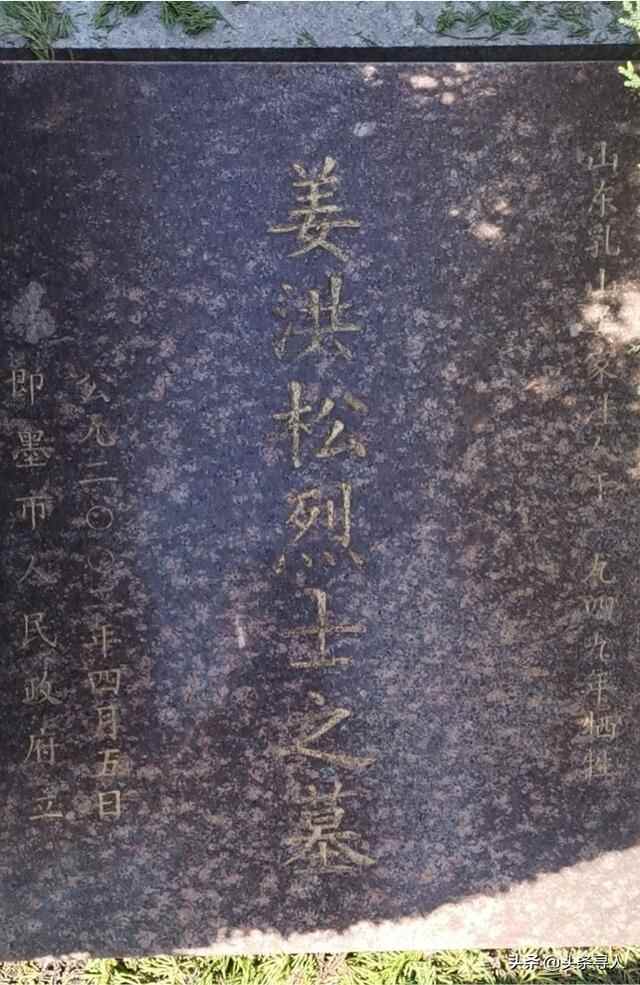 山东乳山家庄人于九四九年牺牲
姜洪松烈士之墓
公元二〇〇年四月五日
即墨市人民政府立
头条@头条寻人